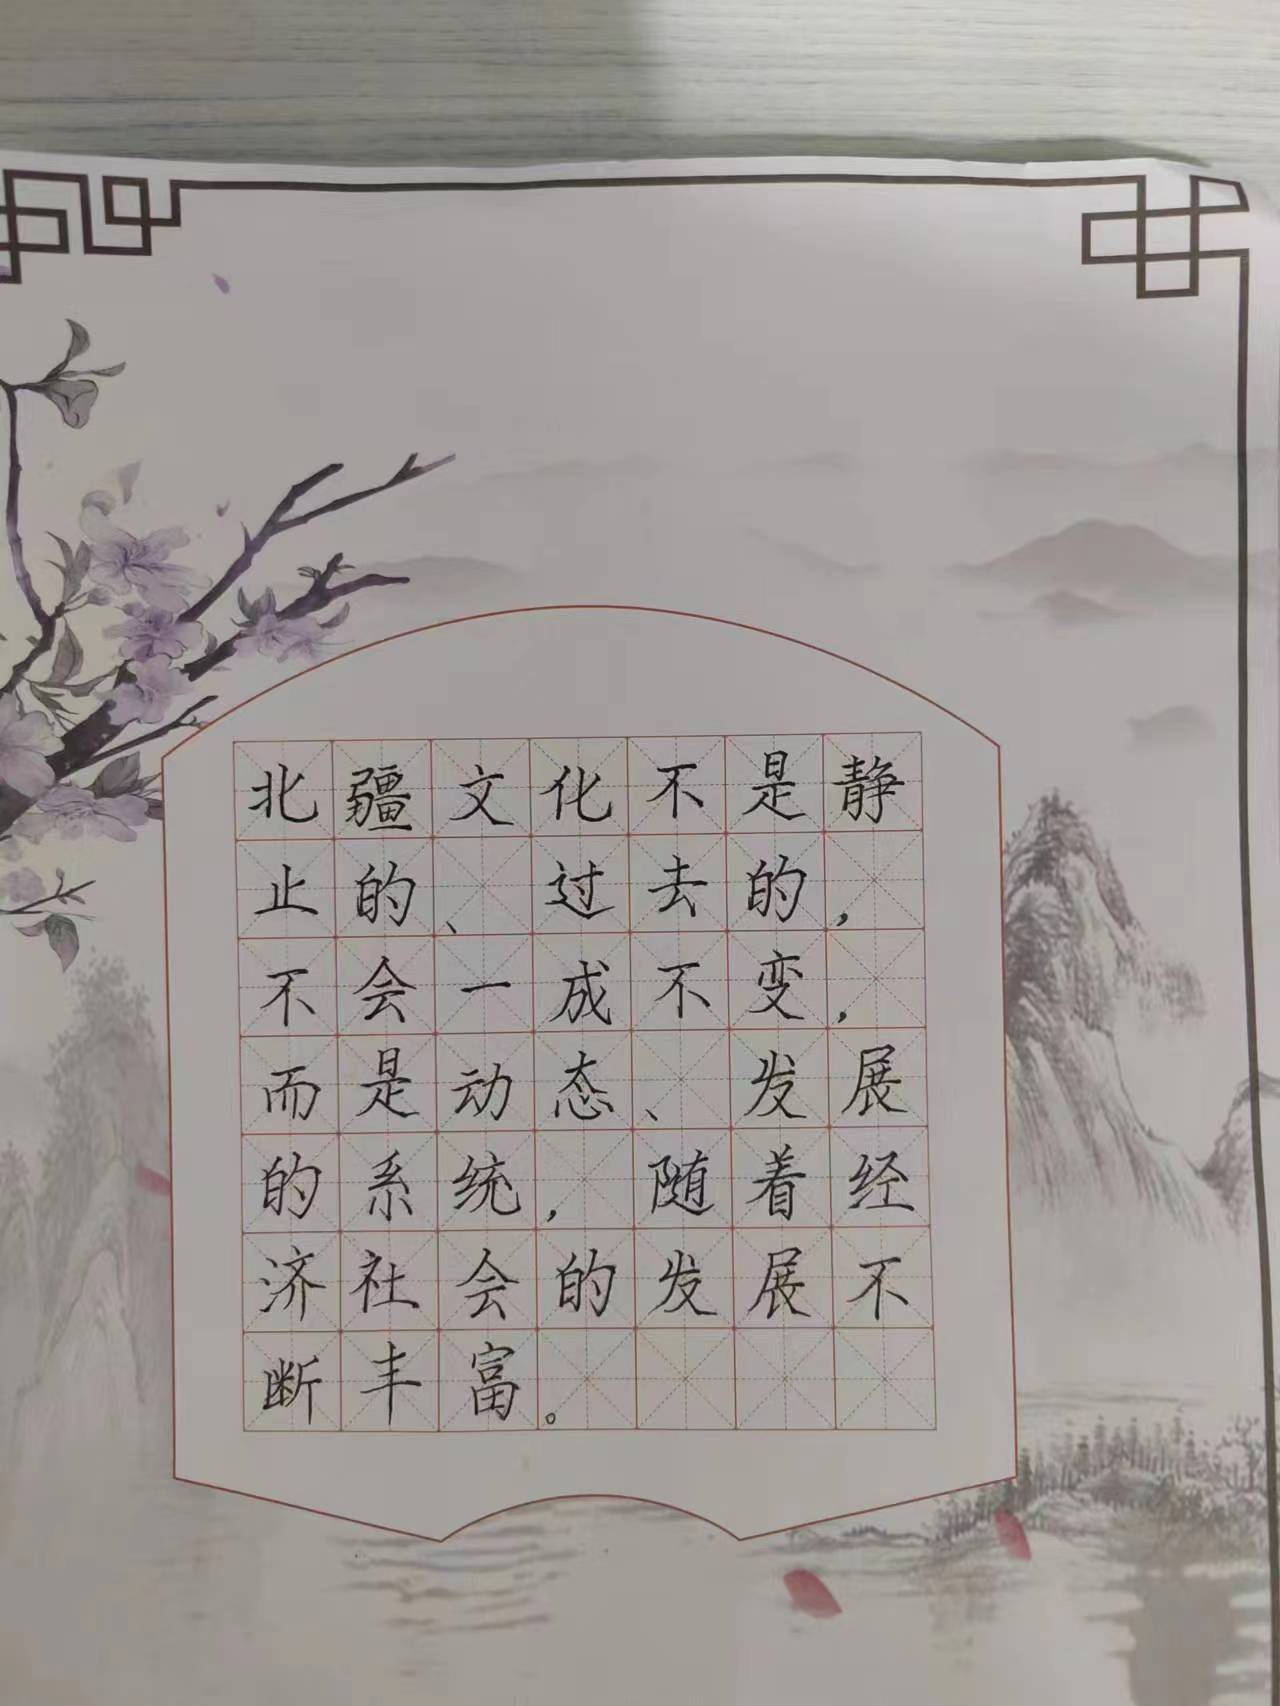 北疆文化不是静
止的、过去的，
不会一成不变，
而是动态、发展
的系统，随着经
济社会的发展不
断丰富。